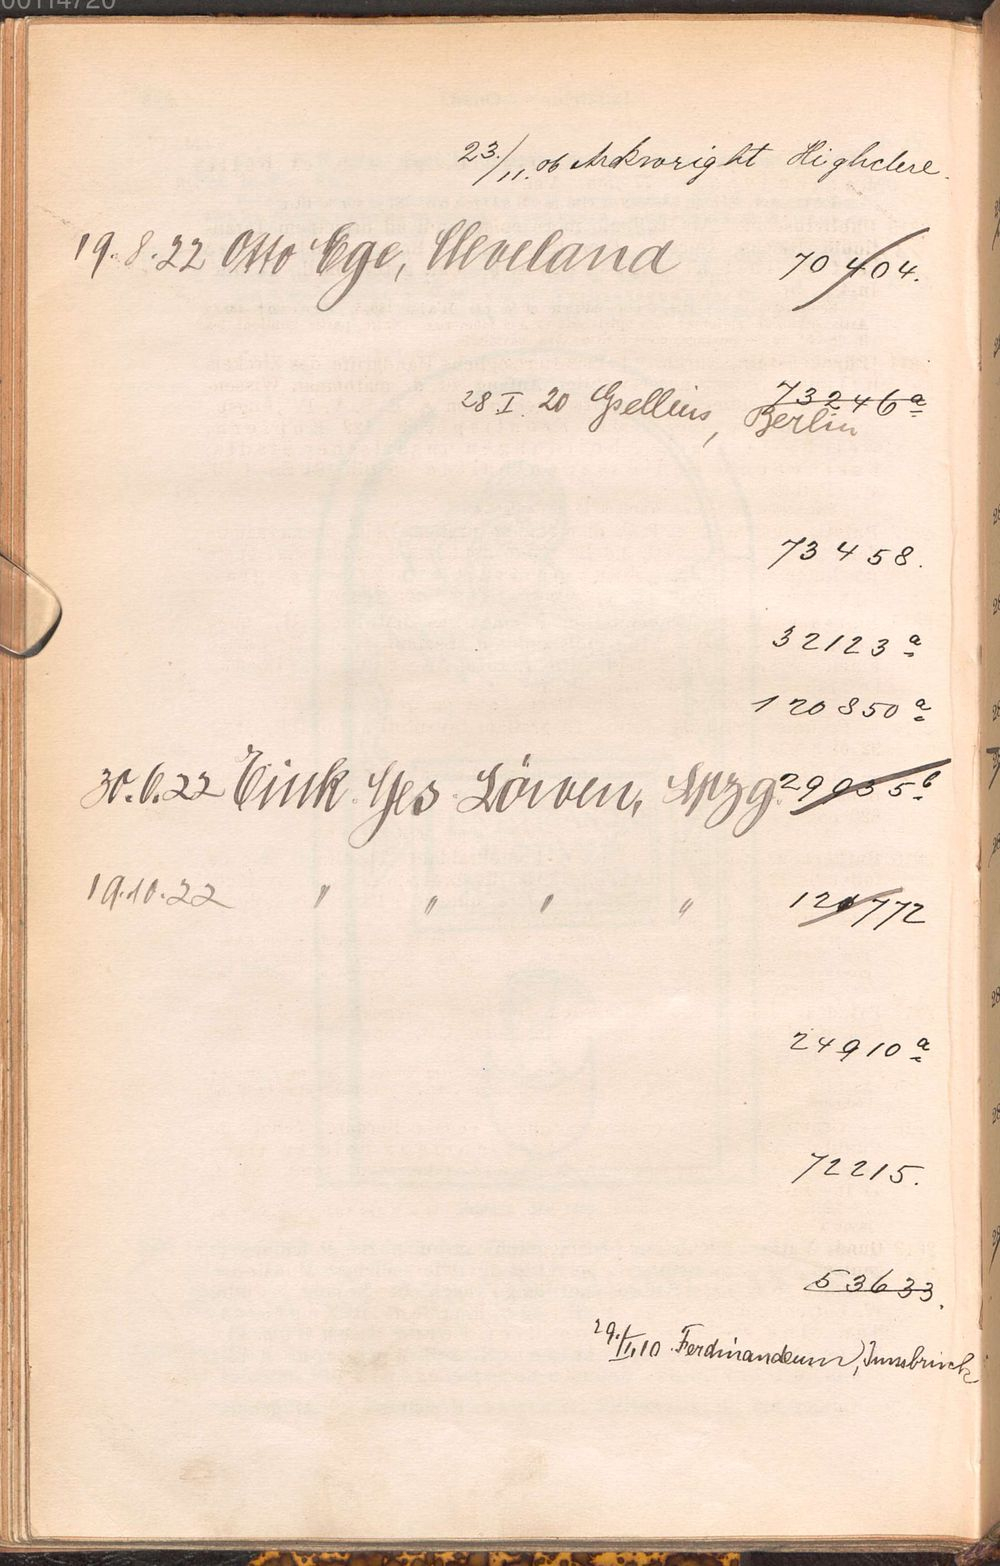 00114720
23./11.06 Arkwright Highclere.
19.8.22 Otto Ege, Cleveland 70404.
73246a
28 I. 20 Gsellius, Berlin
73458.
32123a
120850a
30.6.22 Eink. Ges. Löwen, Lpzg. 29935b
19.10.22 " " " " 120772
24910a
72215.
53633.
29./I.10 Ferdinandeum, Innsbruck